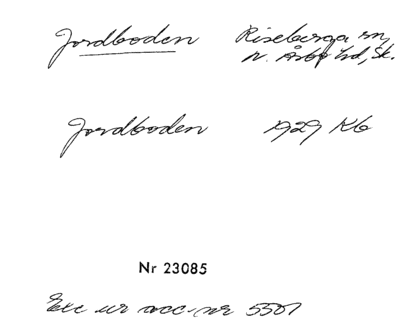 Jordboden Riseberga sn,
N. Åsbo hd, Sk.
Jordboden 1929 Kb
Nr 23085
Exc ur acc-nr 5501